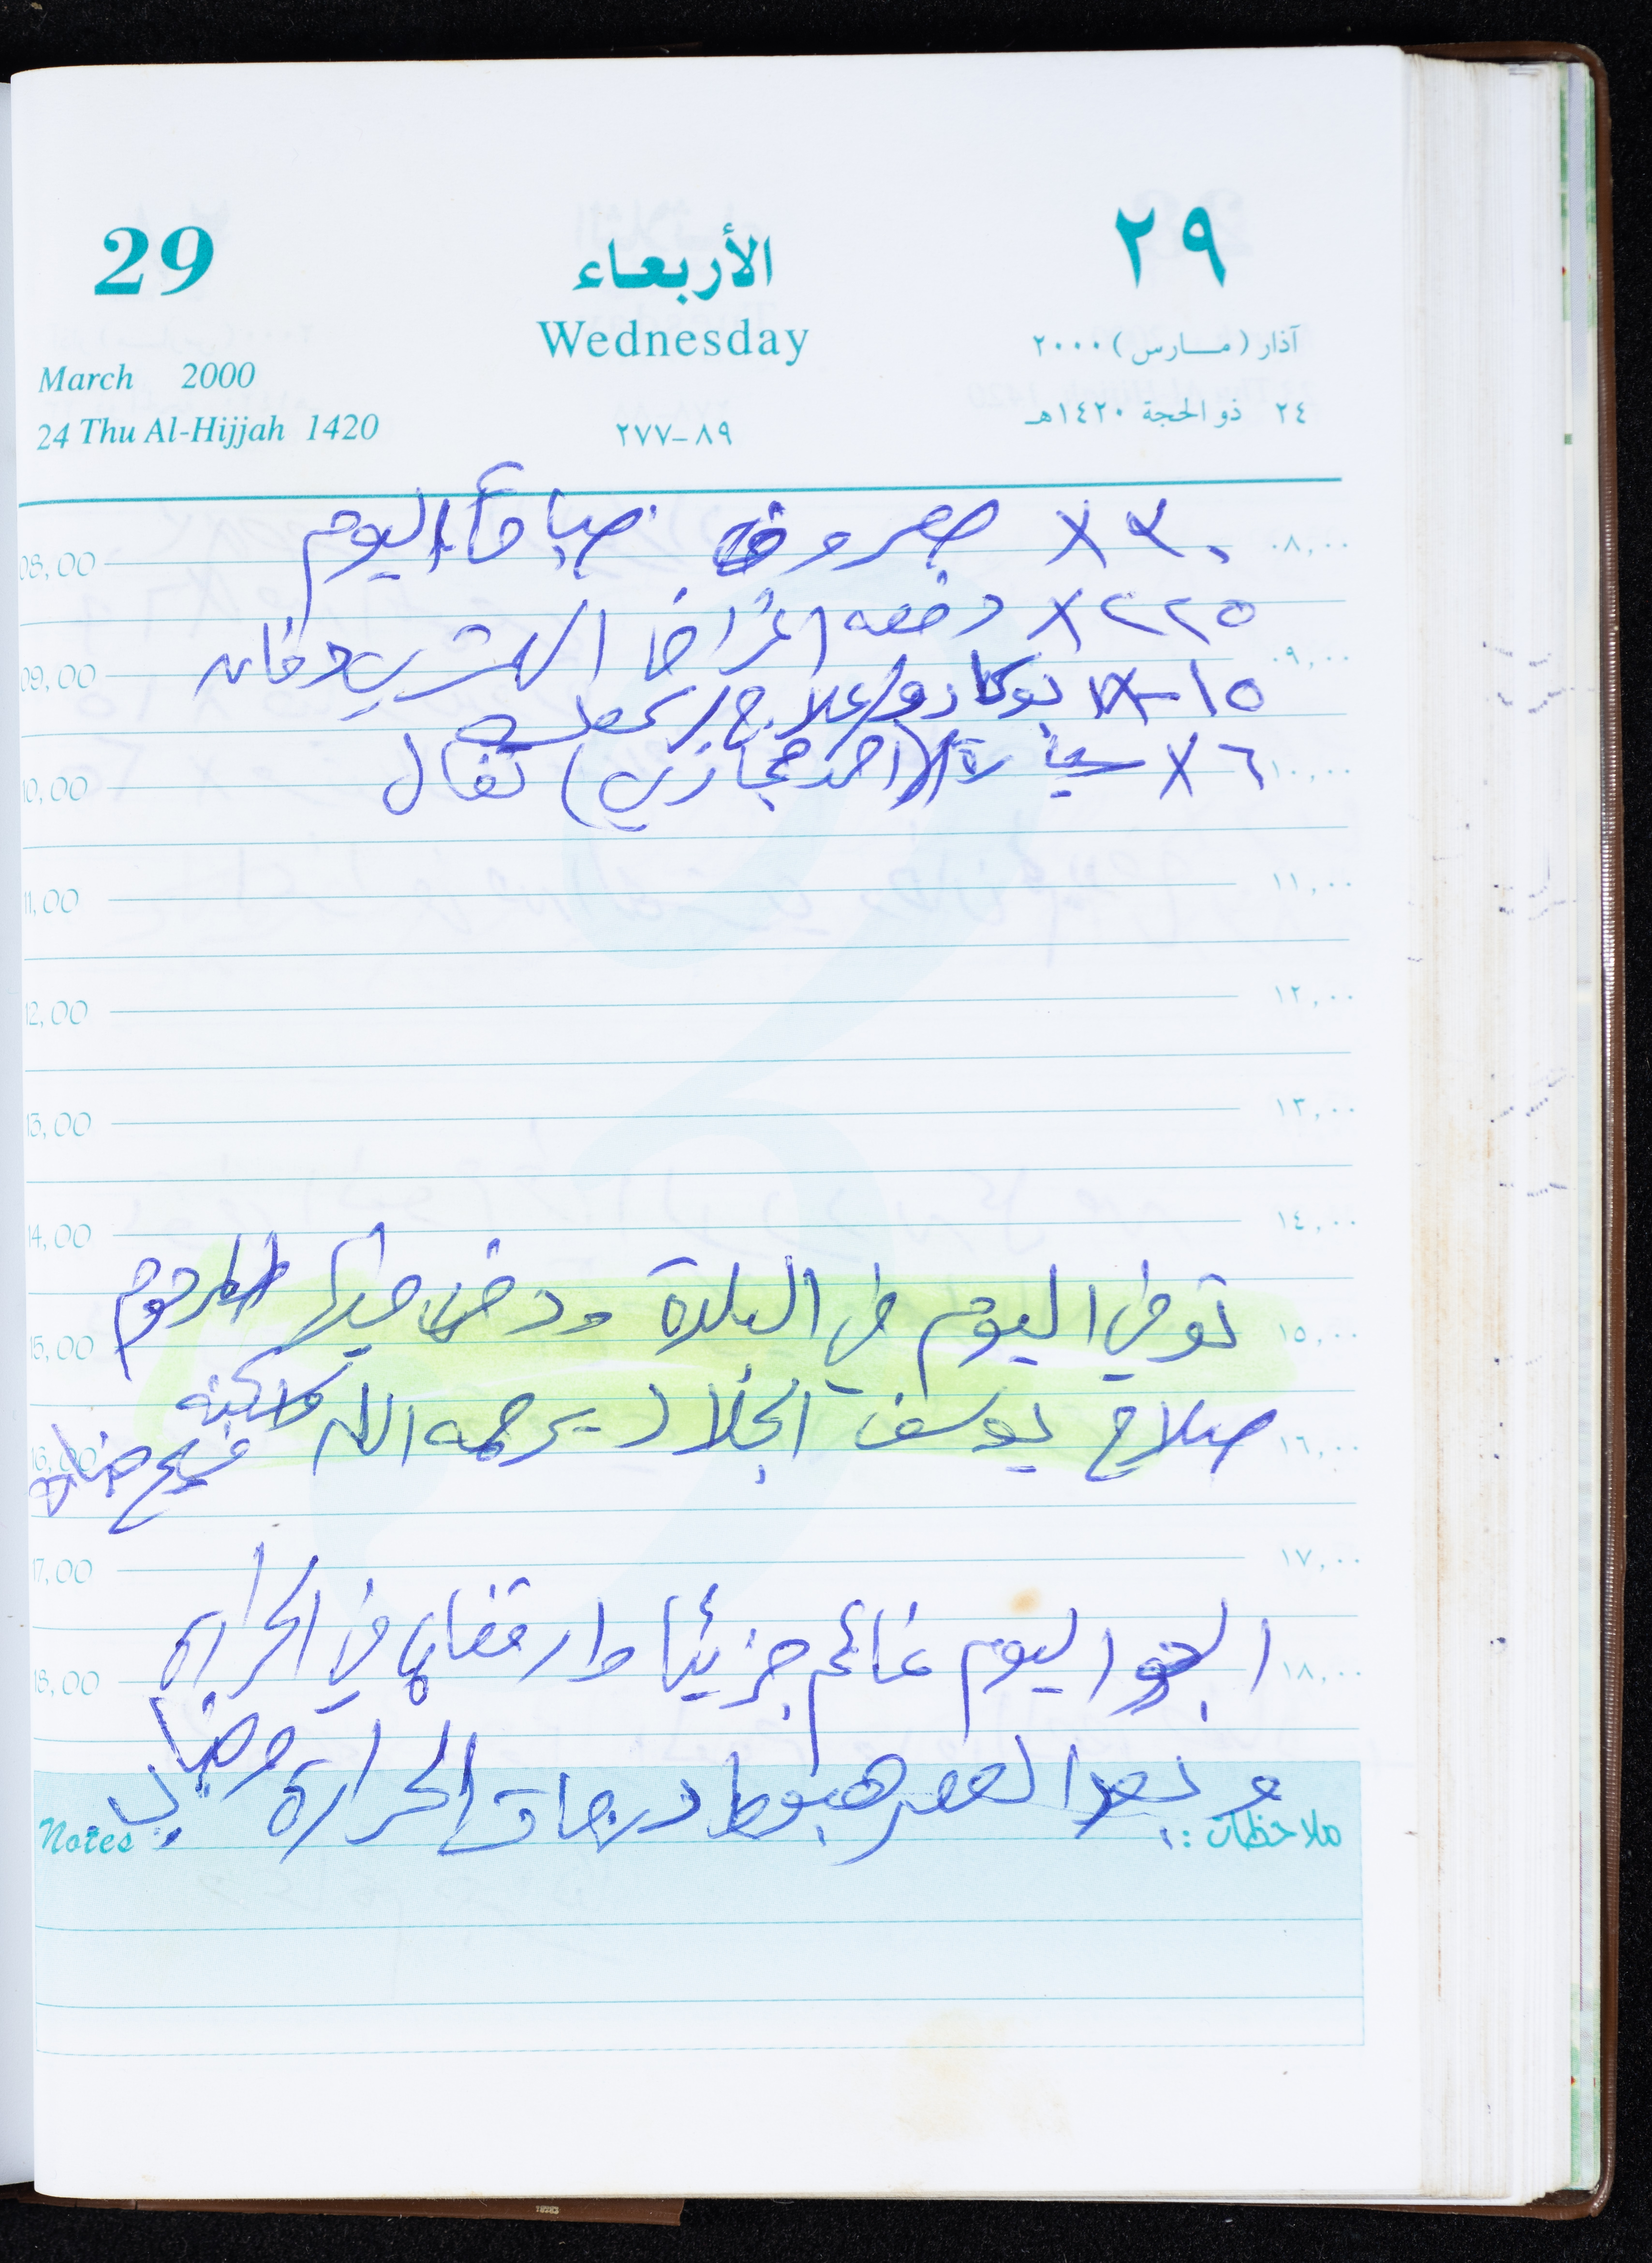 29
الأربعاء
٢٩
Wednesday
آذار (مارس) ٢٠٠٠
March 2000
٢٤ ذو الحجة ١٤٢٠هـ
24 Thu Al-Hijjah 1420
٨٩-٢٧٧
٣٠ X مصروف صباحاً اليوم
08,00 ٠٨,٠٠
٢٢٥ X دفعه اغراض
09,00 ٠٩,٠٠
١٥ X علاج
٦ X سيارة (احمد حجازي)
10,00 ١٠,٠٠
11,00 ١١,٠٠
12,00 ١٢,٠٠
13,00 ١٣,٠٠
14,00 ١٤,٠٠
توفي اليوم في البلدة ودفن فيها المرحوم
15,00 ١٥,٠٠
صلاح يوسف الجلاد يرحمه الله واسكنه
فسيح جنانه
16,00 ١٦,٠٠
17,00 ١٧,٠٠
الجو اليوم غائم جزئيا وارتفاع في الحرارة
18,00 ١٨,٠٠
و بعد العصر هبوط درجات الحرارة وضباب
Notes ملاحظات :